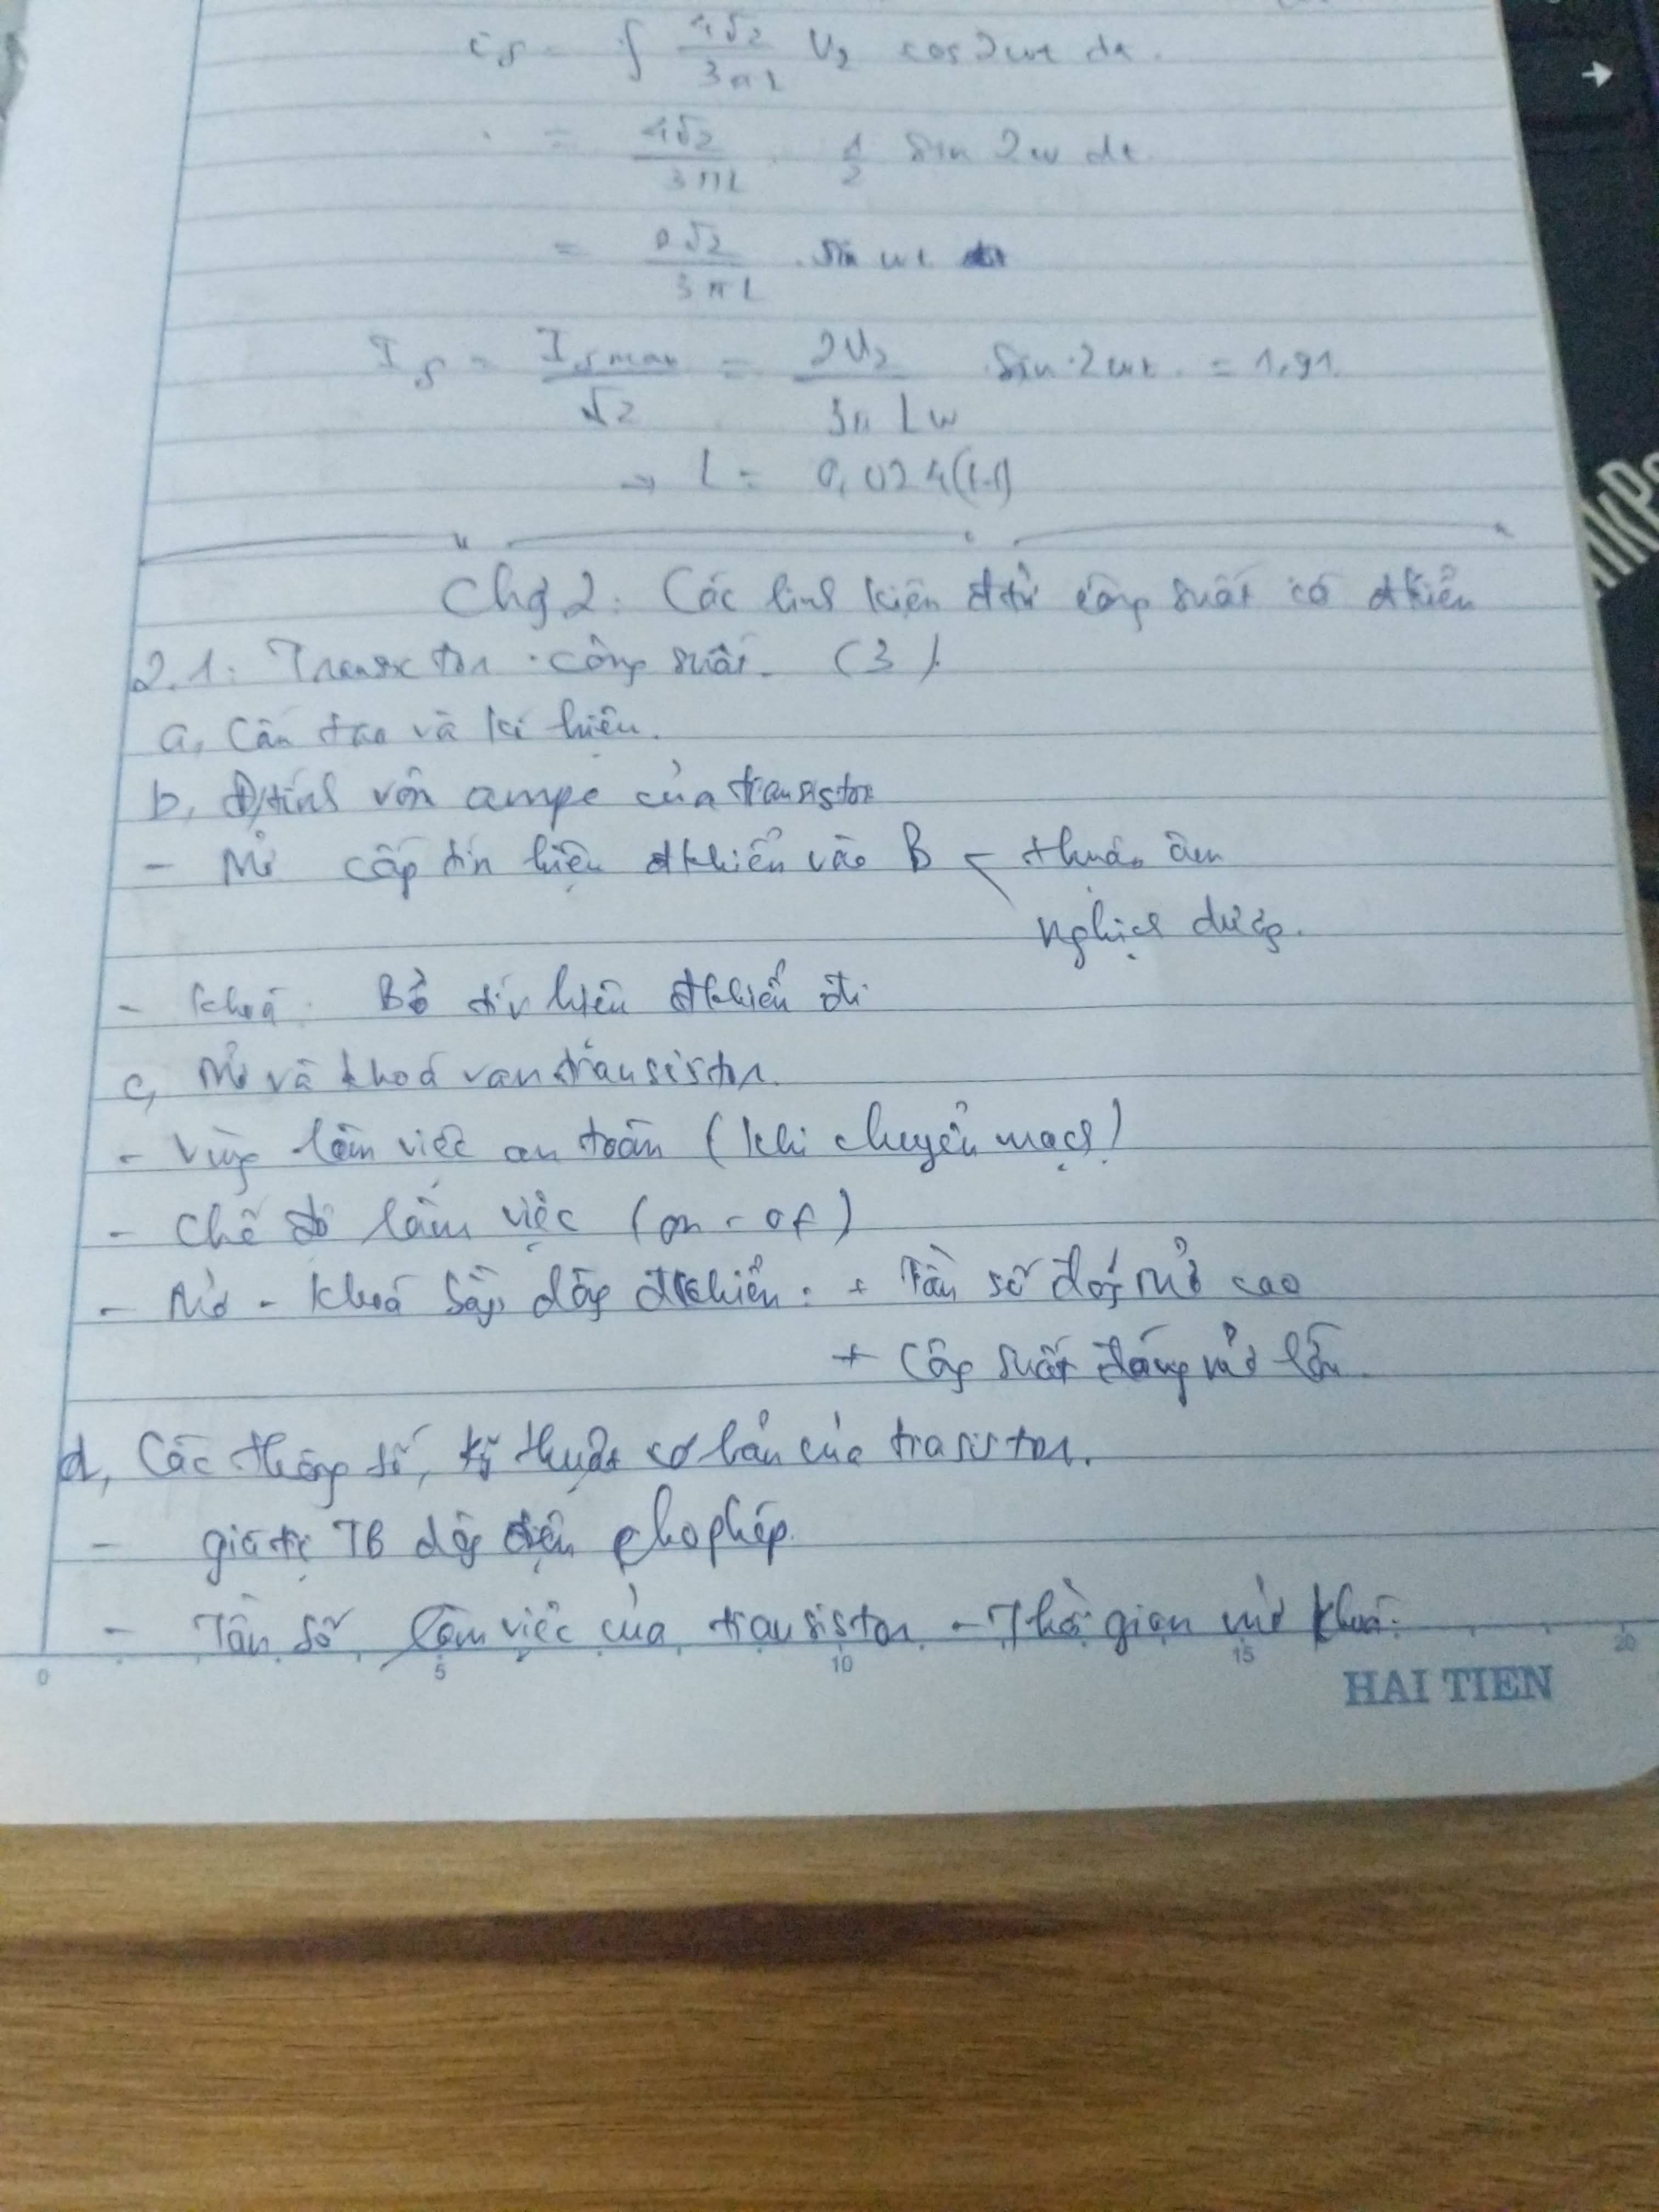 = ∫ 4√2 / 3πL U₂ cos 2ωt dt.
= 4√2 / 3πL . 1/2 sin 2ω dt.
= 2√2 / 3πL . sin ωt
I = I max / √2 = 2U₂ / 3πLω sin 2ωt. = 1,91.
→ L = 0,024(H)
Chg 2: Các linh kiện đtử công suất có đkhiển
2.1: Tranxito công suất. (3).
a, Cấu tạo và kí hiệu.
b, Đ/tính vôn ampe của transistor
- Mở cấp tín hiệu đkhiển vào B thuận âm
nghịch dương.
- Khoá: Bỏ tín hiệu đkhiển đi
c, Mở và khoá van transistor.
- Vùng làm việc an toàn (khi chuyển mạch)
- Chế độ làm việc (on - of)
- Mở - khoá bằng dòng đkhiển: + Tần số đóng mở cao
+ Công suất đóng mở lớn.
d, Các thông số, kỹ thuật cơ bản của trasistor.
- giá trị TB dòng điện cho phép.
- Tần số làm việc của transistor - Thời gian mở khoá.
0 5 10 15 20
HAI TIEN